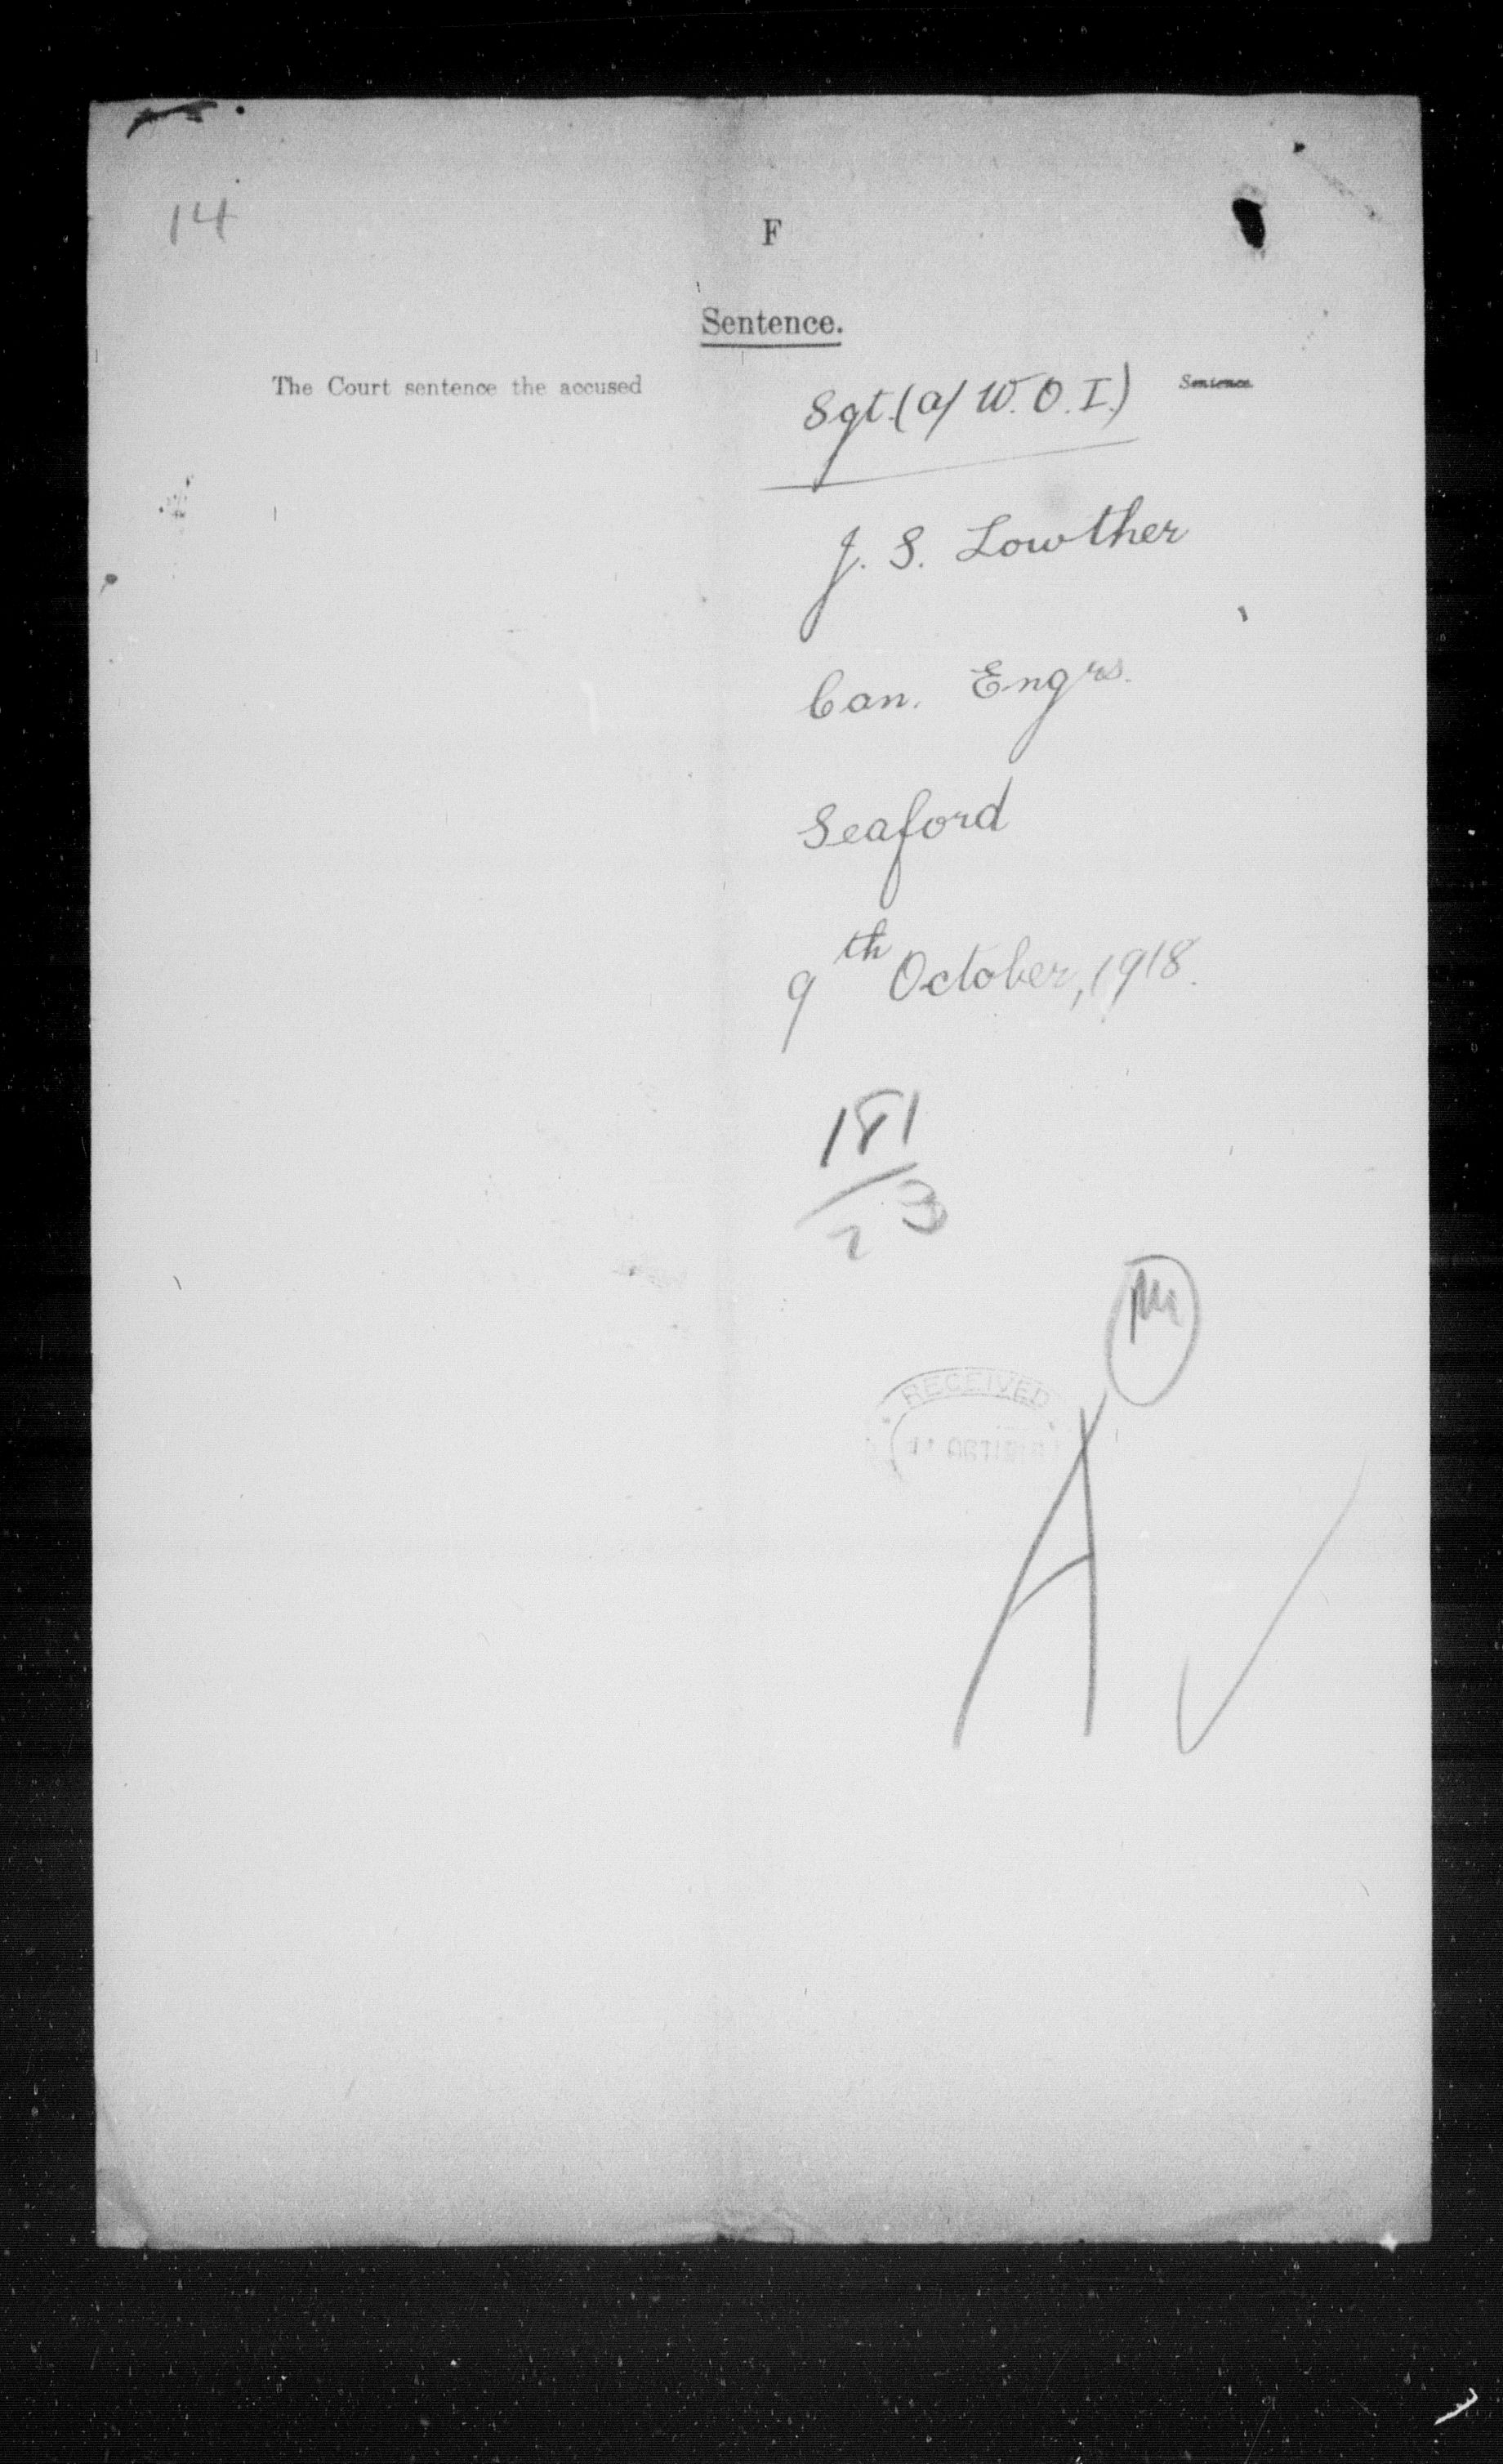 14
F
Sentence.
The Court sentence the accused
Sentence
Sgt. (a/ W. O. I.)
J. S. Lowther
Can. Engrs.
Seaford
9th October, 1918.
181
23
M
RECEIVED
A